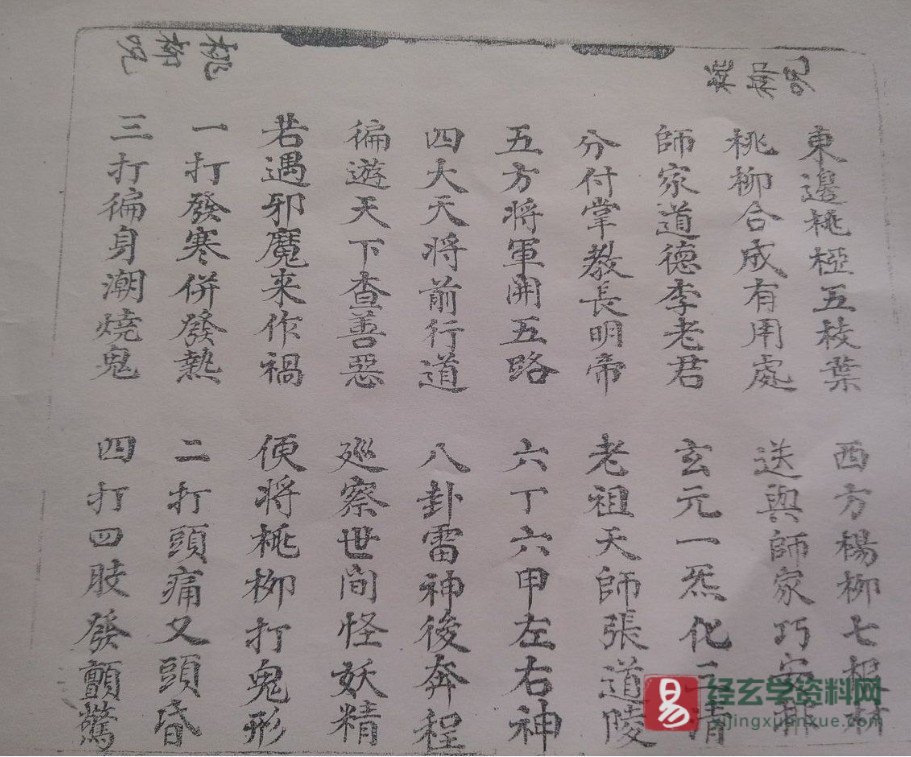 桃柳咒
東邊桃椏五枝葉 西方楊柳七
桃柳合成有用處 送與師家巧
師家道德李老君 玄元一炁化三清
分付掌教長明帝 老祖天師張道陵
五方将軍開五路 六丁六甲左右神
四大天将前行道 八卦雷神後奔程
徧遊天下查善惡 廵察世間怪妖精
若遇邪魔来作禍 便将桃柳打鬼形
一打發寒併發熱 二打頭痛又頭昏
三打徧身潮燒鬼 四打四肢發顫驚
易 经玄学资料网
yijingxuanxue.com